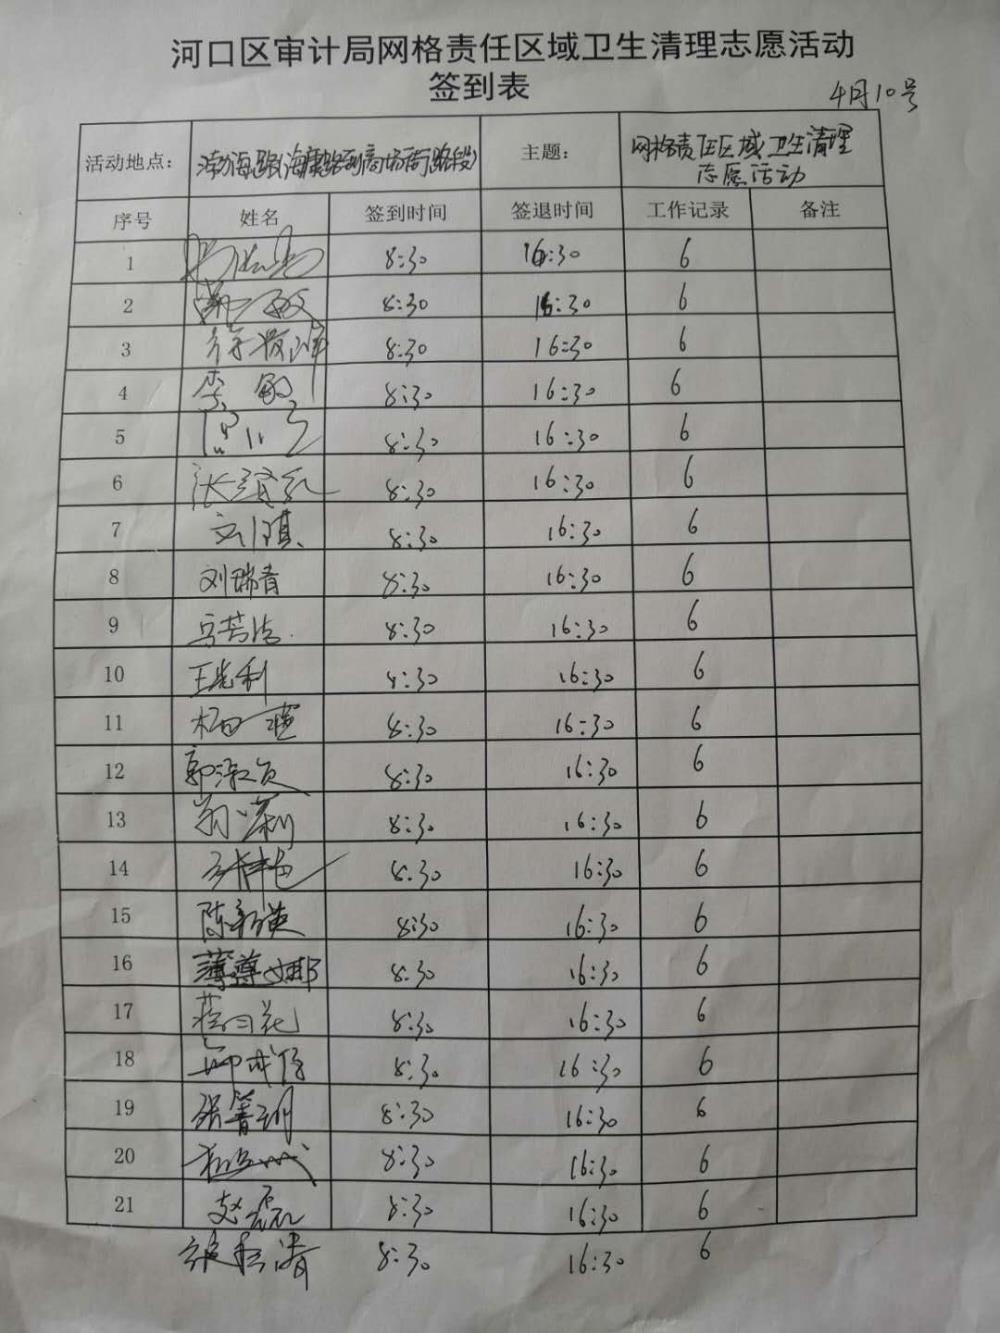 河口区审计局网格责任区域卫生清理志愿活动
签到表
4月10号
活动地点: 渤海路(海康路到商场街路段) 主题: 网格责任区域卫生清理
志愿活动
序号 姓名 签到时间 签退时间 工作记录 备注
1 8:30 16:30 6
2 8:30 16:30 6
3 8:30 16:30 6
4 李敏 8:30 16:30 6
5 8:30 16:30 6
6 8:30 16:30 6
7 8:30 16:30 6
8 刘瑞青 8:30 16:30 6
9 马芳洁 8:30 16:30 6
10 8:30 16:30 6
11 8:30 16:30 6
12 8:30 16:30 6
13 8:30 16:30 6
14 8:30 16:30 6
15 陈新英 8:30 16:30 6
16 薄尊娜 8:30 16:30 6
17 8:30 16:30 6
18 8:30 16:30 6
19 8:30 16:30 6
20 8:30 16:30 6
21 赵磊 8:30 16:30 6
8:30 16:30 6